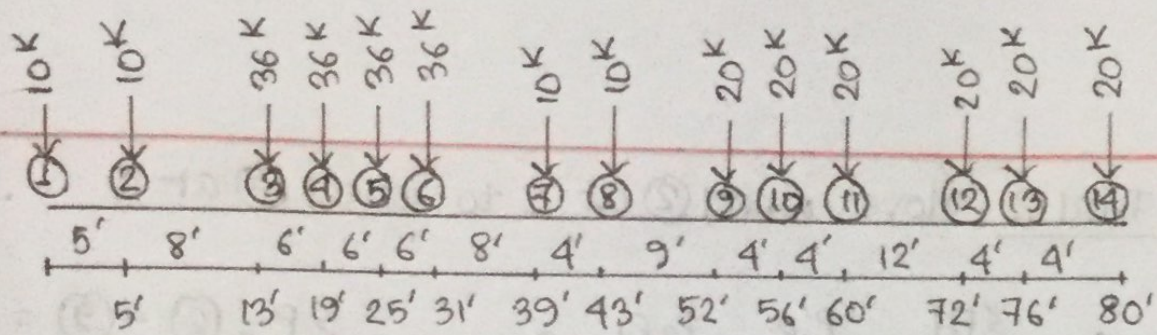 10K 10K 36K 36K 36K 36K 10K 10K 20K 20K 20K 20K 20K 20K
1 2 3 4 5 6 7 8 9 10 11 12 13 14
5' 8' 6' 6' 6' 8' 4' 9' 4' 4' 12' 4' 4'
5' 13' 19' 25' 31' 39' 43' 52' 56' 60' 72' 76' 80'